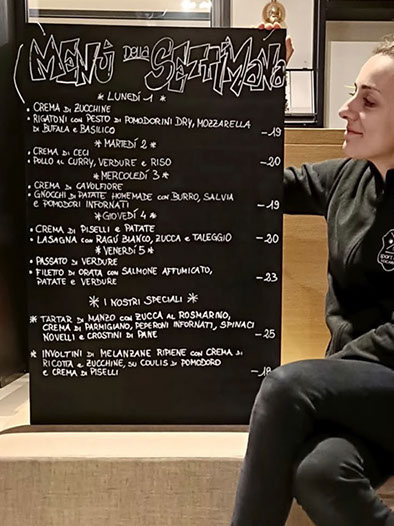 Menù della Settimana
* Lunedì 1 *
• Crema di zucchine
• Rigatoni con pesto di pomodorini dry, mozzarella
di bufala e basilico –19
* Martedì 2 *
• Crema di ceci
• Pollo al curry, verdure e riso –20
* Mercoledì 3 *
• Crema di cavolfiore
• Gnocchi di patate homemade con burro, salvia
e pomodori infornati –19
* Giovedì 4 *
• Crema di piselli e patate
• Lasagna con ragù bianco, zucca e taleggio –20
* Venerdì 5 *
• Passato di verdure
• Filetto di orata con salmone affumicato,
patate e verdure –23
* I nostri speciali *
* Tartar di manzo con zucca al rosmarino,
crema di parmigiano, peperoni infornati, spinaci
novelli e crostini di pane –25
* Involtini di melanzane ripiene con crema di
ricotta e zucchine, su coulis di pomodoro
e crema di piselli –18